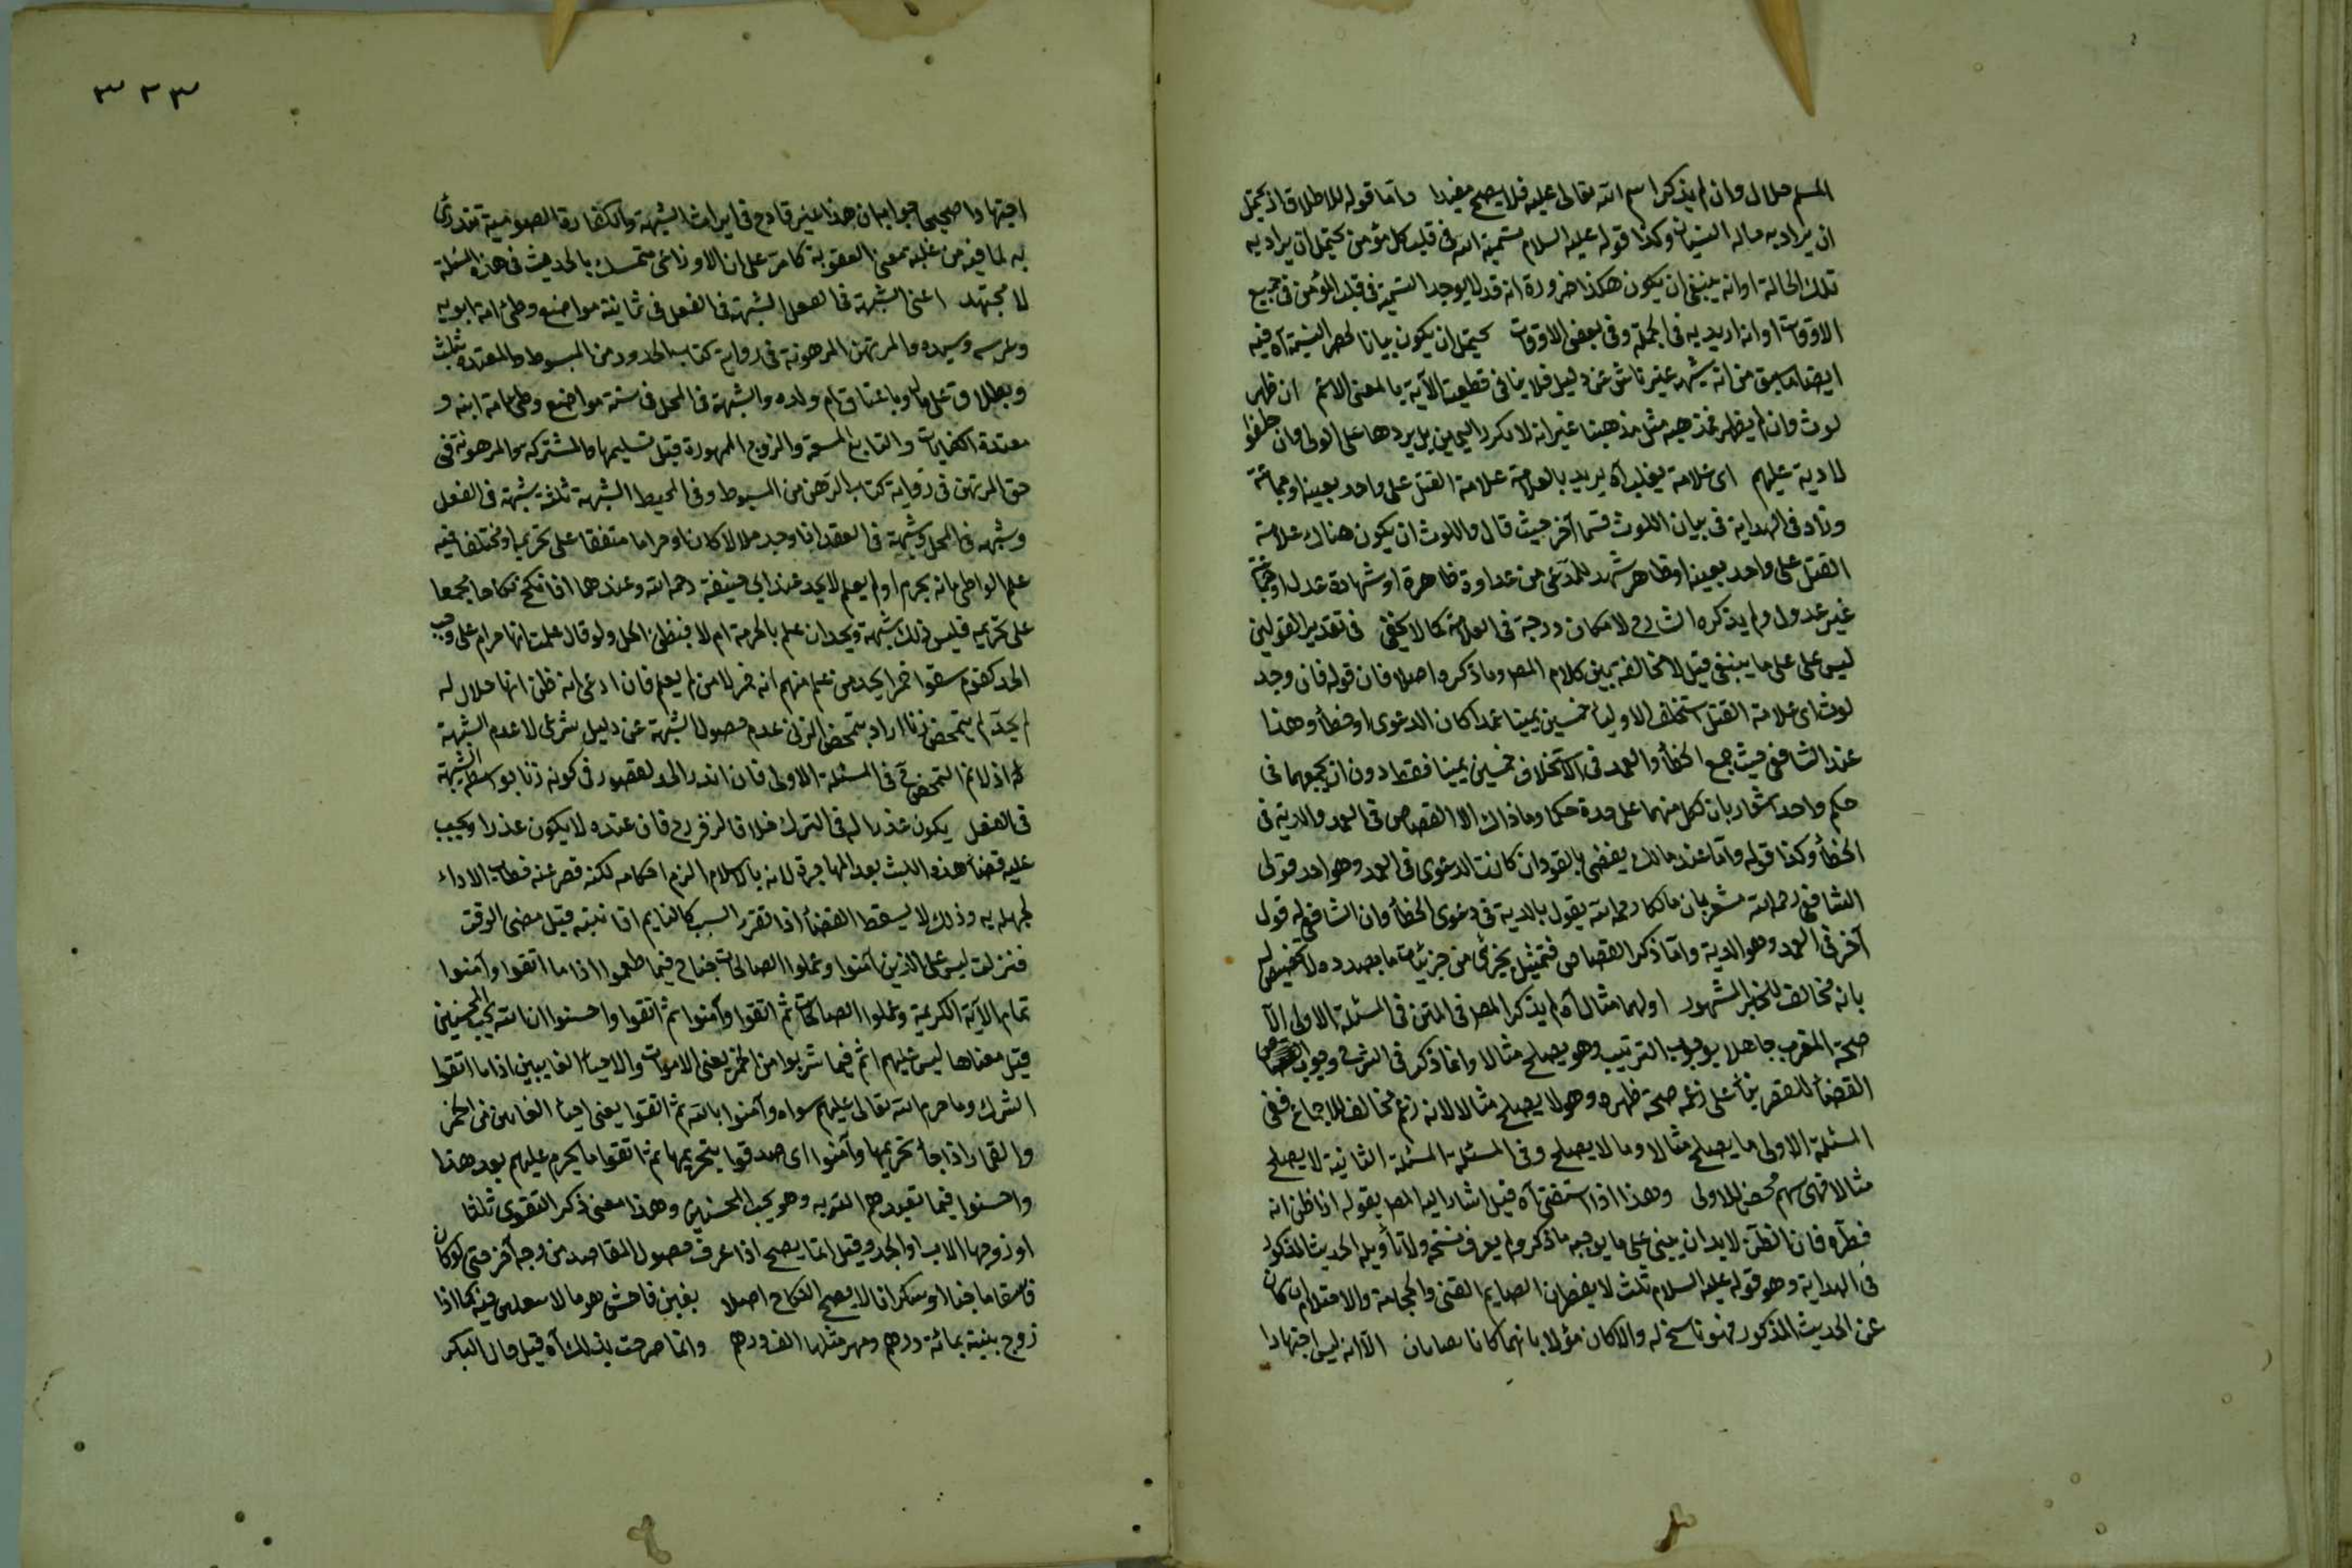 المسلم حلال وان لم يذكر اسم الله تعالى عليه فلا يصح مفيدا واما قوله للاطلاق اذ يحتمل
ان يراد به حالة النسيان وكذا قوله عليه السلام تسمية الله في قلب كل مؤمن يحتمل ان يراد به
تلك الحالة او انه ينبغي ان يكون هكذا ضرورة انه قد لا يوجد التسمية في قلب المؤمن في جميع
الاوقات او انه اريد به في الجملة وفي بعض الاوقات يحتمل ان يكون بيانا لحصر التسمية آه فيه
ايضا ما سبق من انه شبهة غير ناش عن دليل فلا ينافي قطعية الآية بالمعنى الاعم ان ظهر
لوث وان لم يظهر فمذهبه مثل مذهبنا غير انه لا يكرر اليمين بل يردها على الولى فان حلفوا
لا دية عليهم اى علامة يغلب آه يريد بالعلامة علامة القتل على واحد بعينه
وزاد في الهداية في بيان اللوث قسما آخر حيث قال واللوث ان يكون هناك علامة
القتل على واحد بعينه او ظاهر شهد للمدعى من عداوة ظاهرة او شهادة عدل او جماعة
غير عدول ولم يذكره الشارح لامكان درجه في العلامة كما لا يخفى في تقدير القولين
ليس على على ما ينبغي قيل لا مخالفة بين كلام المص وما ذكره اصلا فان قوله فان وجد
لوث اى علامة القتل استحلف الاولياء خمسين يمينا عمدا كان الدعوى او خطأ وهذا
عند الشافعى حيث جمع الخطأ والعمد في الاستحلاف خمسين يمينا فقط دون ان يجمعهما في
حكم واحد اشعار بان لكل منهما على حدة حكما وما ذاك الا القصاص في العمد والدية في
الخطأ وكذا قوله واما عند مالك يقضى بالقود ان كانت الدعوى في العمد وهو احد قولى
الشافعى رحمه الله مشعر بان مالكا رحمه الله يقول بالدية في دعوى الخطأ وان الشافعى له قول
آخر في العمد وهو الدية واما ذكر القصاص فتمثيل بجزئى من جزئيات ما بصدده لا تخصيص له
بانه مخالف للخبر المشهور اولهما مثال آه لم يذكر المص في المتن في المسئلة الاولى الا
صحة المغرب جاهلا بوجوب الترتيب وهو يصلح مثالا وانما ذكر في الشرح وجوب
القضاء للعصر بناء على زعمه صحة ظهره وهو لا يصلح مثالا لانه زعم مخالف للاجماع ففى
المسئلة الاولى ما يصلح مثالا وما لا يصلح وفى المسئلة المسئلة الثانية لا يصلح
مثالا فهى سهم محض للاولى وهذا اذا استفتى آه قيل اشار اليه المص بقوله اذا ظن انه
فطره فان الظن لابد ان يبنى على ما يوجبه ما ذكر ولم يعرف نسخه ولا تأويله الحديث المذكور
في الهداية وهو قوله عليه السلام ثلث لا يفطرن الصايم القئ والحجامة والاحتلام ان كان
عن الحديث المذكور فهو ناسخ له والا كان مؤلا بانهما كانا يغتابان الا انه ليس اجتهادا
٣٢٣
اجتهادا صحيحا جوابه ان هذا غير قادح في ايراث الشبهة والكفارة الصومية تندرئ
به لما فيه من غلبة معنى العقوبة كما مر على ان الاوزاعى متمسك بالحديث في هذه المسئلة
لا مجتهد اعنى الشبهة في الفعل الشبهة في الفعل في ثمانية مواضع وطئ امة ابويه
وعرسه وسيده والمرتهن المرهونة في رواية كتاب الحدود من المبسوط والمعتدة بثلث
وبطلاق على مال وباعتاق ام ولده والشبهة في المحل في ستة مواضع وطئ امة ابنه و
معتدة الكنايات والبايع المبيعة والزوج الممهورة قبل تسليمها والمشتركة والمرهونة في
حق المرتهن في رواية كتاب الرهن من المبسوط وفى المحيط الشبهة ثلثة شبهة في الفعل
وشبهة في المحل وشبهة في العقد اذا وجد حلالا كان او حراما متفقا على تحريمه او مختلفا فيه
علم الواطئ انه يحرم او لم يعلم لا يحد عند ابى حنيفة رحمه الله وعندهما اذا نكح نكاحا مجمعا
على تحريمه فليس ذلك شبهة ويحد ان علم بالحرمة ام لا فبظن الحل ولو قال علمت انها حرام على وجب
الحد كقوم سقوا خمرا يحد من علم منهم انه خمر لا من لم يعلم فان ادعى انه ظن انها حلال له
لم يحد لم يتمحض زنا اراد بتمحض الزنى عدم حصول الشبهة عن دليل شرعى لا عدم الشبهة
له اذ لا تم التمحض ح في المسئلة الاولى فان اندراء الحد لقصور في كونه زنا بواسطة الشبهة
في الفعل يكون عذرا له في الترك خلافا لزفر رح فان عنده لا يكون عذرا ويجب
عليه قضاء هذه اللبث بعد المهاجرة لانه بالاسلام التزم احكامه لكنه قصر عنه خطاب الاداء
لجهله به وذلك لا يسقط القضاء اذا تقرر السبب كالنايم اذا نبته قبل مضى الوقت
فنزلت ليس على الذين آمنوا وعملوا الصالحات جناح فيما طعموا اذا ما اتقوا وآمنوا
تمام الآية الكريمة وعملوا الصالحات ثم اتقوا وآمنوا ثم اتقوا واحسنوا ان الله يحب المحسنين
قيل معناها ليس عليهم اثم فيما شربوا من الخمر يعنى الاموات والاحياء الغايبين اذا ما اتقوا
الشرك وما حرم الله تعالى عليهم سواه وآمنوا بالله ثم اتقوا يعنى احياء الغايبين من الخمر
والقمار اذا جاء تحريمها وآمنوا اى صدقوا بتحريمها ثم اتقوا ما يحرم عليهم بعد هذا
واحسنوا فيما تعبدهم الله به وهو يحب المحسنين وهذا معنى ذكر التقوى ثلثا
او زوجها الاب او الجد وقيل انما يصح اذا عرف حصول المقاصد من وجه آخر حتى لو كان
فاسقا ماجنا او سكرانا لا يصح النكاح اصلا بغبن فاحش هو ما لا فيه كما اذا
زوج بنته بمائة درهم ومهر مثلها الف درهم وانما صرحت بذلك آه قيل قال البكر